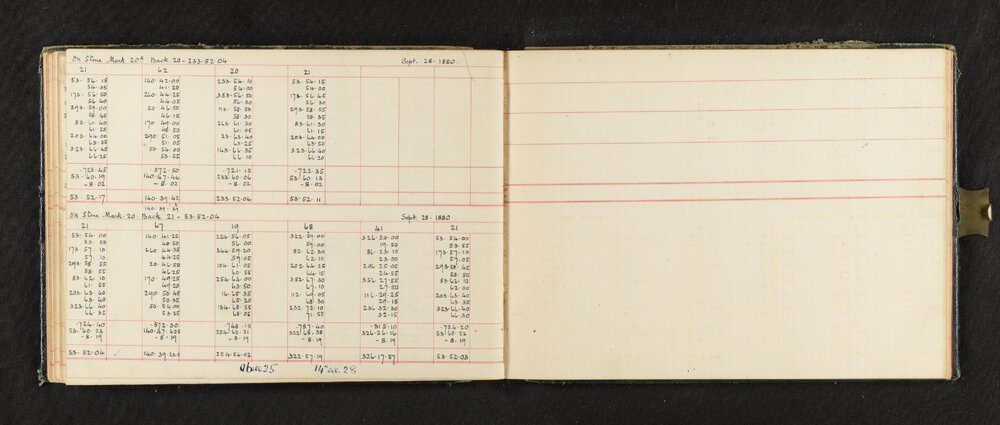 On Stone Mark 20A Back 20 - 233·52·04 Sept. 28·1880.
21 62 20 21
53·54·15 140·42·00 233·54·10 53·54·15
54·05 41·20 54·00 54·00
173·56·50 260·44·25 353·56·50 173·56·45
56·40 44·05 56·30 56·30
293·59·00 20·46·50 113·58·50 293·58·55
58·45 46·15 58·30 58·35
83·61·40 170·49·00 263·61·30 83·61·30
61·25 48·50 61·05 61·15
203·64·00 290·51·05 23·63·40 203·64·00
63·55 51·05 63·25 63·50
323·66·45 50·54·00 143·66·35 323·66·40
66·25 53·55 66·10 66·20
·723·45 ·572·50 ·721·15 ·722·35
53·60·19 140·47·44 233·60·06 53·60·13
-8·02 -8·02 -8·02 -8·02
53·52·17 140·39·42 233·52·04 53·52·11
140·39·39
On Stone Mark 20 Back 21 - 53·52·04 Sept. 28·1880
21 67 19 68 41 21
53·54·00 140·41·25 224·56·05 322·59·00 326·20·00 53·54·00
53·50 40·50 56·00 59·00 19·50 53·55
173·57·10 260·44·35 344·59·20 82·62·30 86·23·10 173·57·10
57·10 44·25 59·05 62·10 23·00 57·05
293·58·55 20·46·50 104·61·05 202·64·25 206·25·05 293·58·45
58·55 46·25 60·55 64·15 24·55 58·50
83·62·10 170·49·25 254·64·00 352·67·30 356·27·55 83·62·10
61·55 49·20 63·50 67·10 27·50 62·00
203·63·40 290·50·45 14·65·35 112·69·05 116·29·25 203·63·40
63·40 50·35 65·20 68·50 29·15 63·35
323·66·40 50·54·00 134·68·55 232·72·10 236·32·30 323·66·40
66·35 53·55 68·05 71·55 32·15 66·30
·724·40 ·572·30 ·748·15 ·787·40 ·315·10 ·724·20
53·60·23 140·47·425 224·62·21 322·65·38 326·26·16 53·60·22
-8·19 -8·19 -8·19 -8·19 -8·19 -8·19
53·52·04 140·39·235 224·54·02 322·57·19 326·17·57 53·52·03